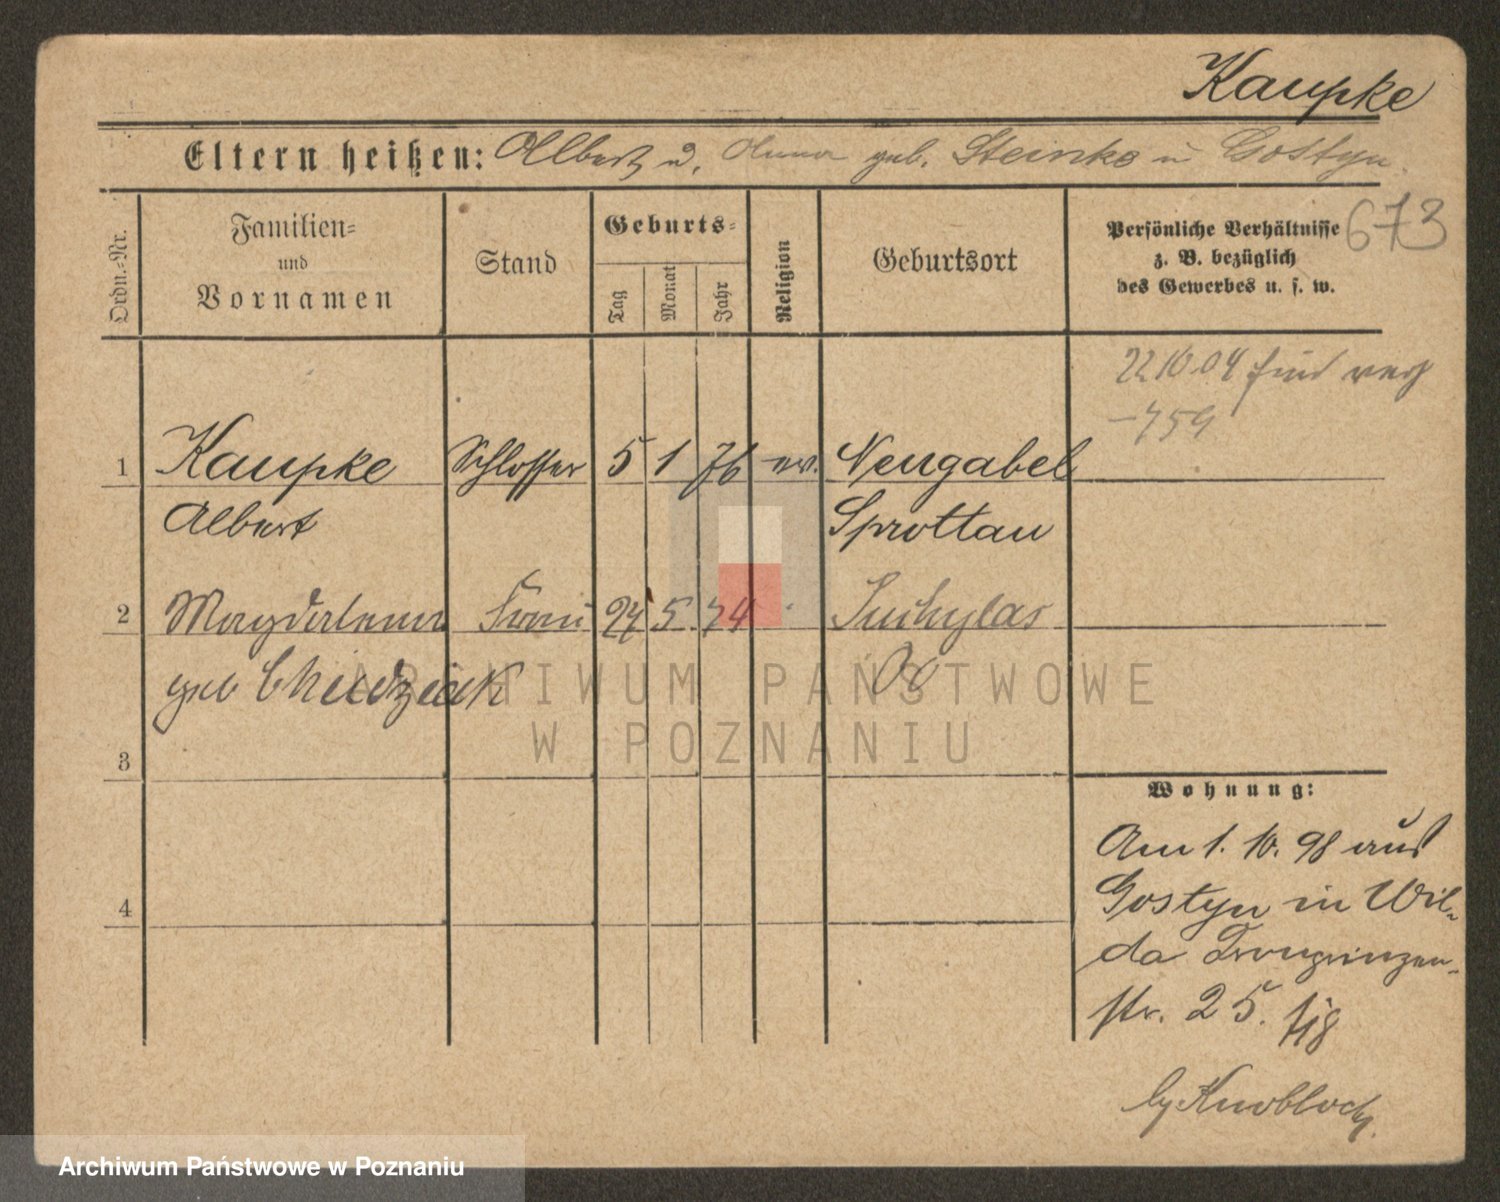 Kaupke
Eltern heißen: Albert u. Anna geb. Steinke in Gostyn.
Ordn.-Nr.
Familien-
und
Vornamen
Stand
Geburts-
Tag
Monat
Jahr
Religion
Geburtsort
Persönliche Verhältnisse
z. B. bezüglich
des Gewerbes u. s. w.
673
22 10 04
-759
1 Kaupke Schlosser 5 1 76 ev. Neugabel
Albert Sprottau
2 Magdalena Frau 24 5 74 Suchylas
geb Chudziak
ARCHIWUM PAŃSTWOWE
W POZNANIU
3
4
Wohnung:
Am 1. 10. 98 aus
Gostyn in Wil-
da Kronprinzen-
str. 25.
by Knobloch.
Archiwum Państwowe w Poznaniu